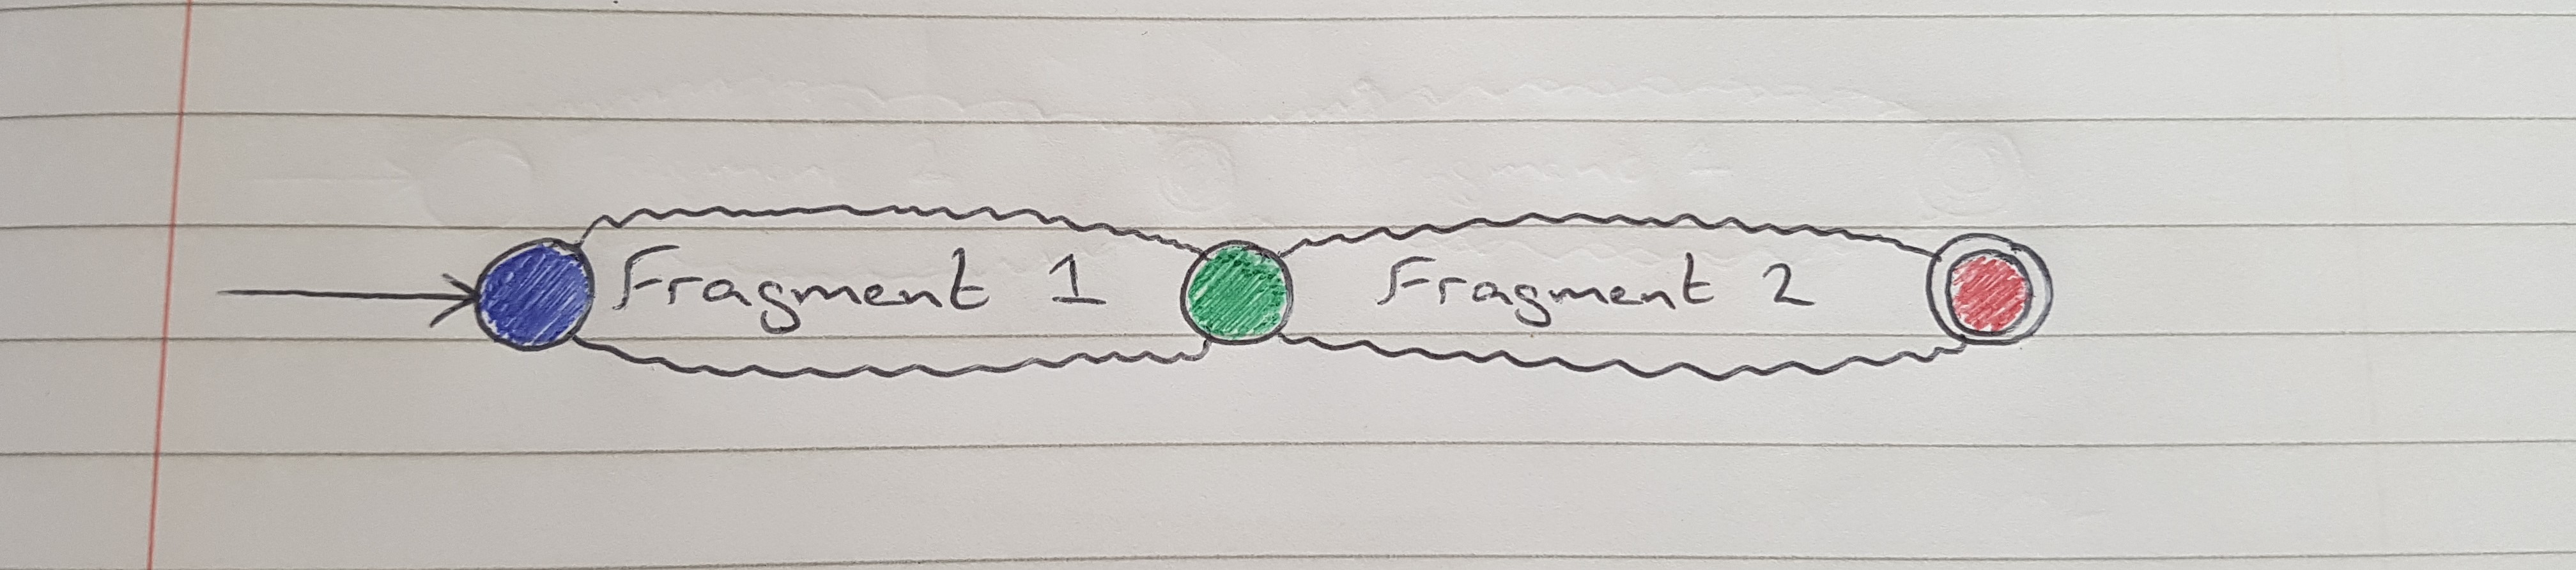 Fragment 1 Fragment 2